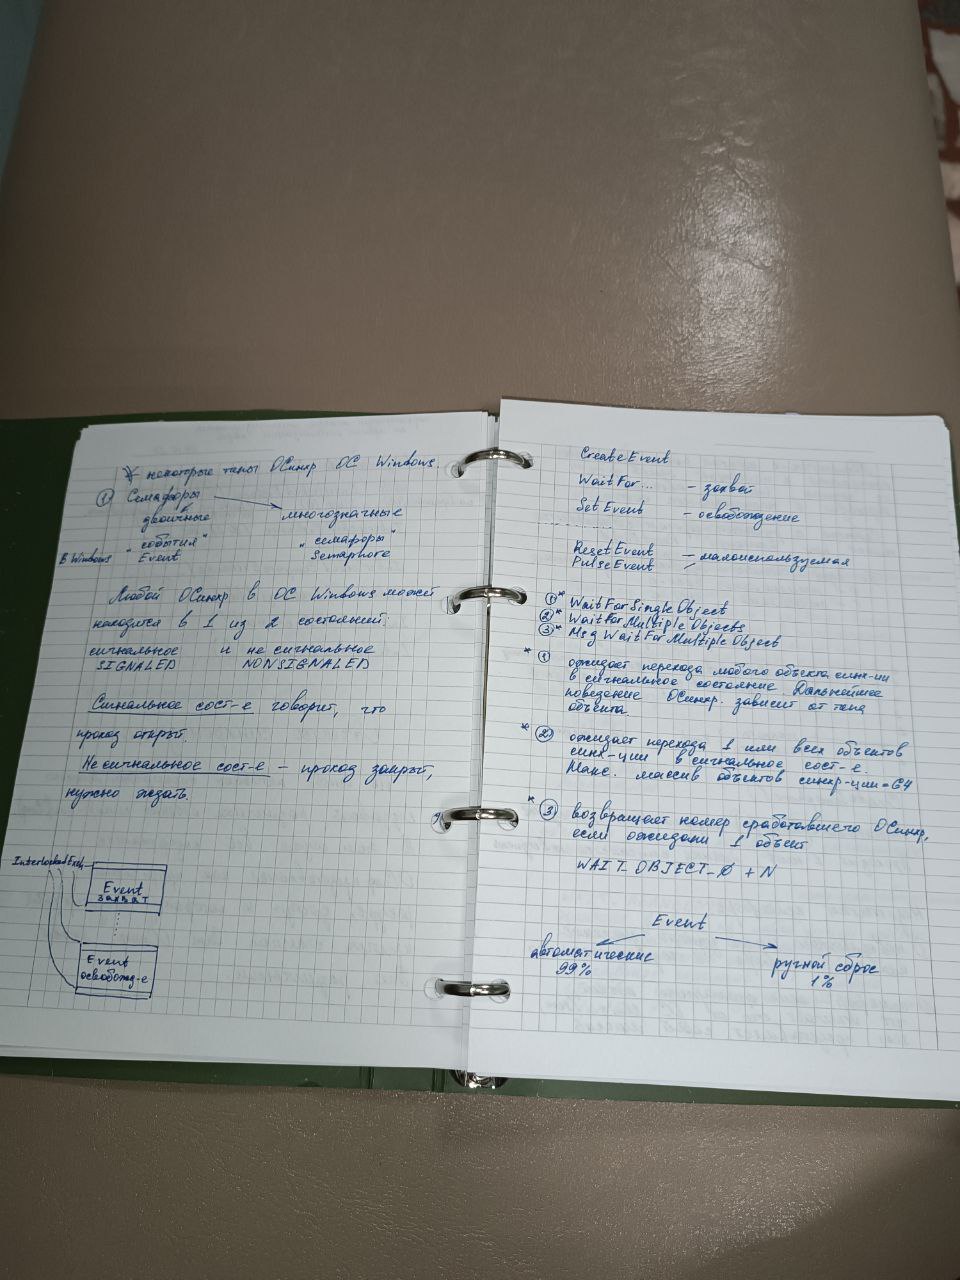 некоторые типы ОСинхр ОС Windows.
① Семафоры
двоичные многозначные
"события" "семафоры"
В Windows Event Semaphore
Любой ОСинхр в ОС Windows может
находится в 1 из 2 состояний:
сигнальное и не сигнальное
SIGNALED NONSIGNALED
Сигнальное сост-е говорит, что
проход открыт.
Не сигнальное сост-е – проход закрыт,
нужно ждать.
InterlockedExch
Event
захват
Event
освобожд-е
CreateEvent
WaitFor... – захват
SetEvent – освобождение
ResetEvent – малоиспользуемая
PulseEvent –
①* WaitForSingleObject
②* WaitForMultipleObjects
③* MsgWaitForMultipleObject
* ① ожидает перехода любого объекта синх-ии
в сигнальное состояние. Дальнейшее
поведение ОСинхр. зависит от типа
объекта.
* ② ожидает перехода 1 или всех объектов
синх-ции в сигнальное сост-е.
Макс. массив объектов синхр-ции = 64
* ③ возвращает номер сработавшего ОСинхр,
если ожидали 1 объект
WAIT_OBJECT_0 + N
Event
автоматические ручной сброс
99% 1%